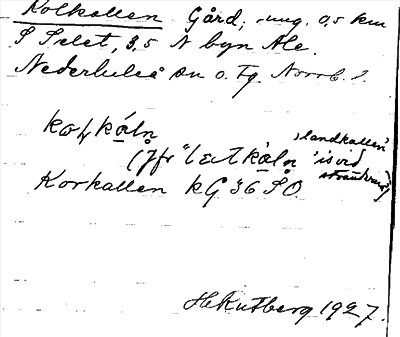 Kolkallen. Gård, ung. 0,5 km
S Selet, 3,5 N byn Ale.
Nederluleå sn o. tg. Norrb. l.
kɷɫkáln
(Jfr lɛtkáln 'isvid
'landkallen'
stranden')
Korkallen kG 36 SO
H. Kutberg 1927.